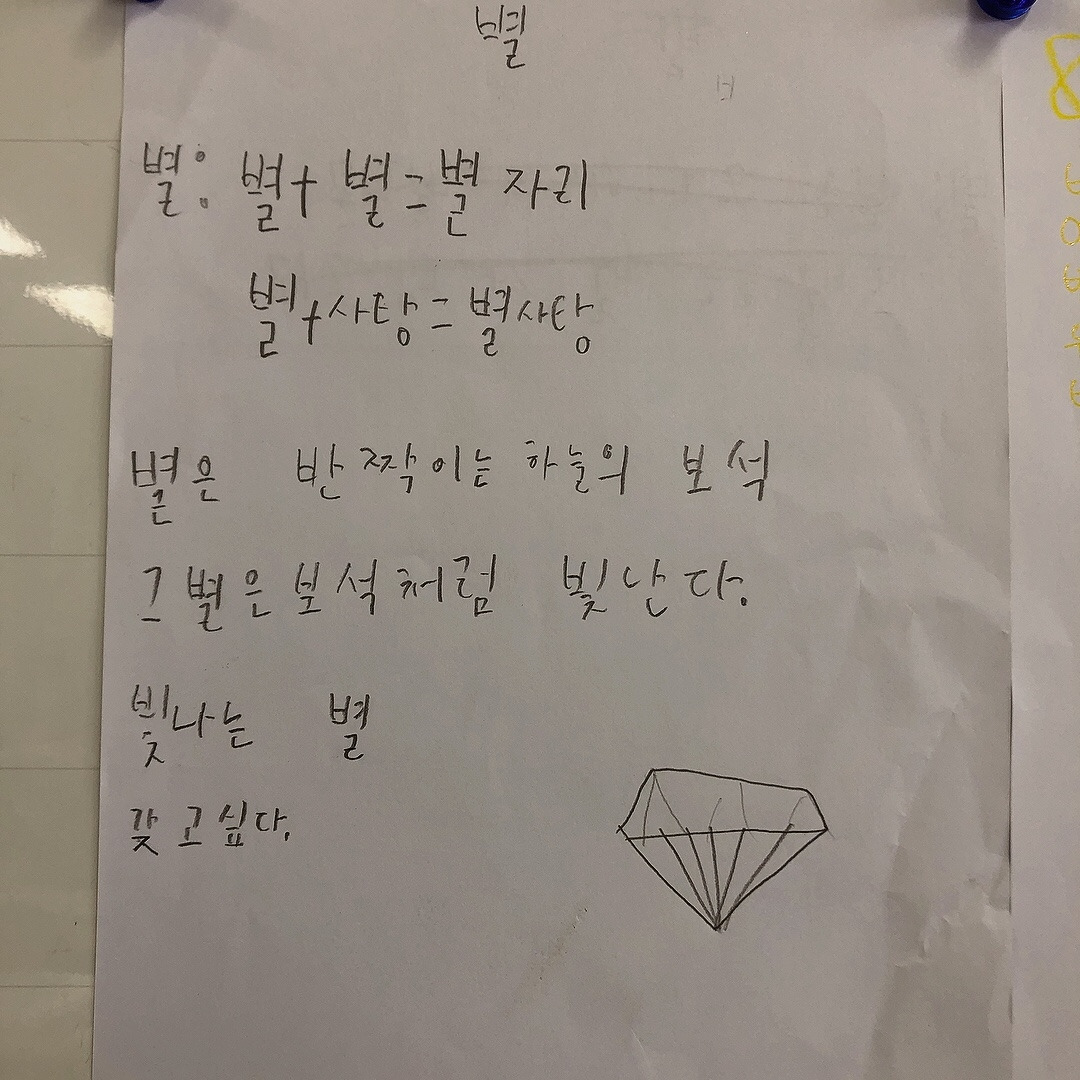 별
별: 별+ 별=별 자리
별+사탕=별사탕
별은 반짝이는 하늘의 보석
그 별은 보석처럼 빛난다.
빛나는 별
갖고싶다.
8